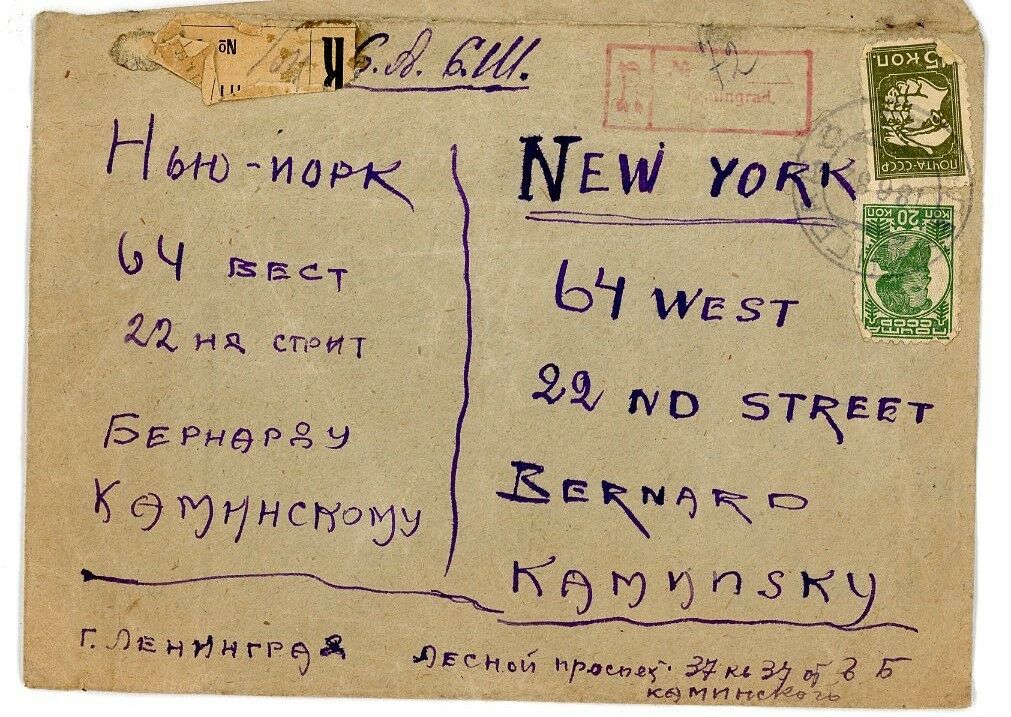 №
К
С. А. С.Ш.
№ 72
15 КОП.
ПОЧТА-СССР
20 КОП КОП
ПОЧТА СССР
Нью-йорк
64 вест
22 нд стрит
Бернарду
Каминскому
NEW YORK
64 WEST
22 ND STREET
BERNARD
KAMINSKY
г. ЛЕНИНГРАД Лесной проспек. 37 кв 34 от В Б
Каминского